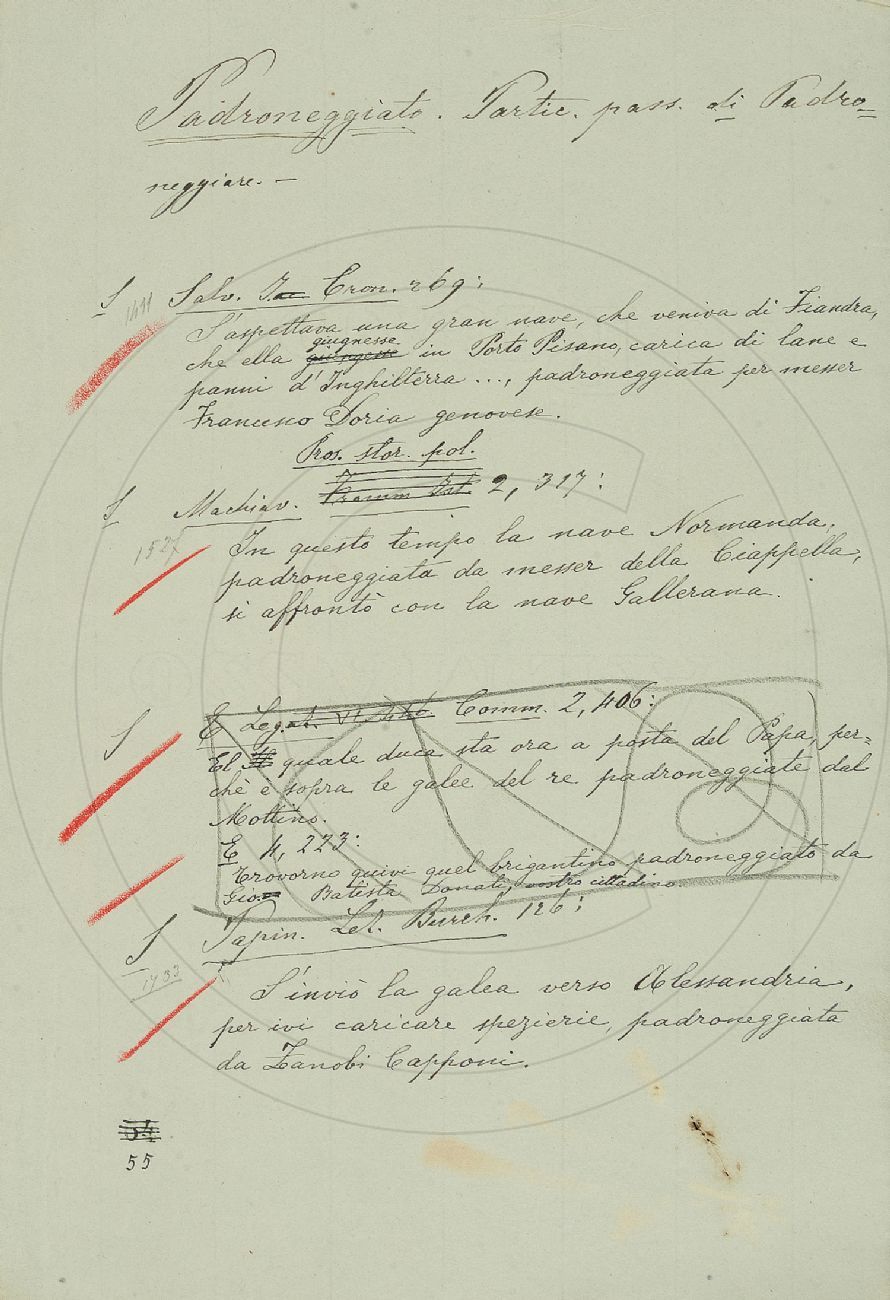 Padroneggiato. Partic. pass. di Padro=
neggiare. —
S 1411 Salv. Cron. 269:
S'aspettava una gran nave, che veniva di Fiandra,
giugnesse
che ella giungesse in Porto Pisano, carica di lane e
panni d'Inghilterra ..., padroneggiata per messer
Francesco Doria genovese.
Pros. stor. pol.
S Machiav. Framm. Ist. 2, 317:
1527 In questo tempo la nave Normanda,
padroneggiata da messer della Ciappella,
si affrontò con la nave Gallerana.
S E Legat. Comm. 2, 406:
El quale duca sta ora a posta del Papa, per=
chè è sopra le galee del re padroneggiate dal
Mottino.
E 4, 223:
Trovorno quivi quel brigantino padroneggiato da
Gio. Batista Donati, nostro cittadino.
S Papin. Let. Burch. 126:
1733
S'inviò la galea verso Alessandria,
per ivi caricare spezierie, padroneggiata
da Zanobi Capponi.
54
55